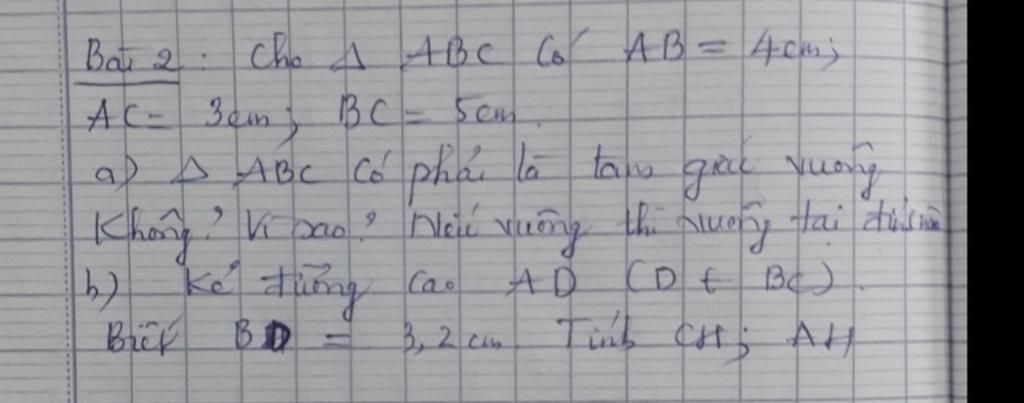 Bài 2: Cho Δ ABC có AB = 4cm;
AC = 3cm; BC = 5cm.
a) Δ ABC có phải là tam giác vuông
không? Vì sao? Nếu vuông thì vuông tại đỉnh nào
b) Kẻ đường cao AD (D ∈ BC).
Biết BD = 3,2 cm Tính CH; AH